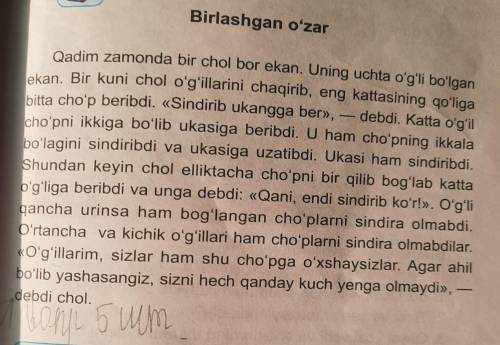 Birlashgan o‘zar
Qadim zamonda bir chol bor ekan. Uning uchta o‘g‘li bo‘lgan
ekan. Bir kuni chol o‘g‘illarini chaqirib, eng kattasining qo‘liga
bitta cho‘p beribdi. «Sindirib ukangga ber», — debdi. Katta o‘g‘il
cho‘pni ikkiga bo‘lib ukasiga beribdi. U ham cho‘pning ikkala
bo‘lagini sindiribdi va ukasiga uzatibdi. Ukasi ham sindiribdi.
Shundan keyin chol elliktacha cho‘pni bir qilib bog‘lab katta
o‘g‘liga beribdi va unga debdi: «Qani, endi sindirib ko‘r!». O‘g‘li
qancha urinsa ham bog‘langan cho‘plarni sindira olmabdi.
O‘rtancha va kichik o‘g‘illari ham cho‘plarni sindira olmabdilar.
«O‘g‘illarim, sizlar ham shu cho‘pga o‘xshaysizlar. Agar ahil
bo‘lib yashasangiz, sizni hech qanday kuch yenga olmaydi», —
debdi chol.
5